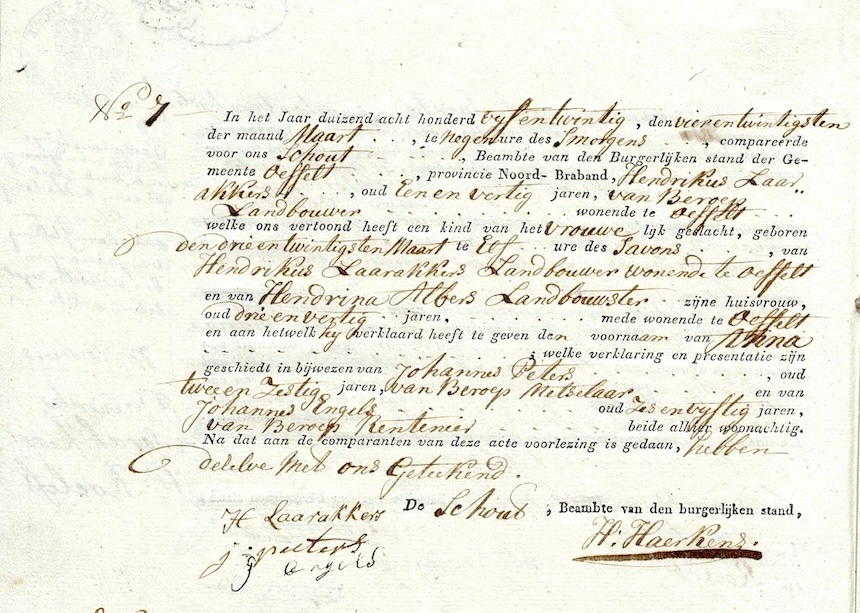 No 7
In het Jaar duizend acht honderd vyf en twintig, den vierentwintigsten
der maand Maart . . , te negen ure des Smorgens . . . , compareerde
voor ons Schout . . . . . , Beambte van den Burgerlijken stand der Ge-
meente Oeffelt . . . , provincie Noord-Braband, Hendrikus Laar
akkers . . . . , oud Een en vertig jaren, van Beroep
Landbouwer . . . . . . . . . . . wonende te Oeffelt
welke ons vertoond heeft een kind van het vrouwe lijk geslacht, geboren
den drie entwintigsten Maart te Elf . ure des Savons . . . . , van
Hendrikus Laarakkers Landbouwer wonende te Oeffelt
en van Hendrina Albers Landbouwster . . zijne huisvrouw,
oud drie en vertig . . jaren, . . . . . . . . mede wonende te Oeffelt
en aan hetwelk hy verklaard heeft te geven den voornaam van Anna
. . . . . . . . . . . . . . . . . ; welke verklaring en presentatie zijn
geschiedt in bijwezen van Johannes Peters . . . . . . . . . , oud
twee en Zestig jaren, van Beroep Metselaar . . . . . . en van
Johannes Engels . . . . . . . . . . oud Zes en vyftig jaren,
van Beroep Rentenier . . . . . . beide alhier woonachtig.
Na dat aan de comparanten van deze acte voorlezing is gedaan, hebben
deselve Met ons Geteekend.
De Schout , Beambte van den burgerlijken stand,
H Laarakkers
H. Haerkens.
j. peeters
J Engels